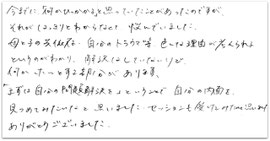 今までに何かひっかかると思っていたことがあったのですが、
それがはっきりとわからなくて悩んでいました。
母と子の共依存、自分のトラウマ等、色々な理由が考えられる
というのがわかり、解決はしていないけど
何かホッとする部分があります。
まずは自分の問題解決をということで自分の内面を
見つめてみたいなと思いました。セッションも受けてみたいと思います
ありがとうございました。